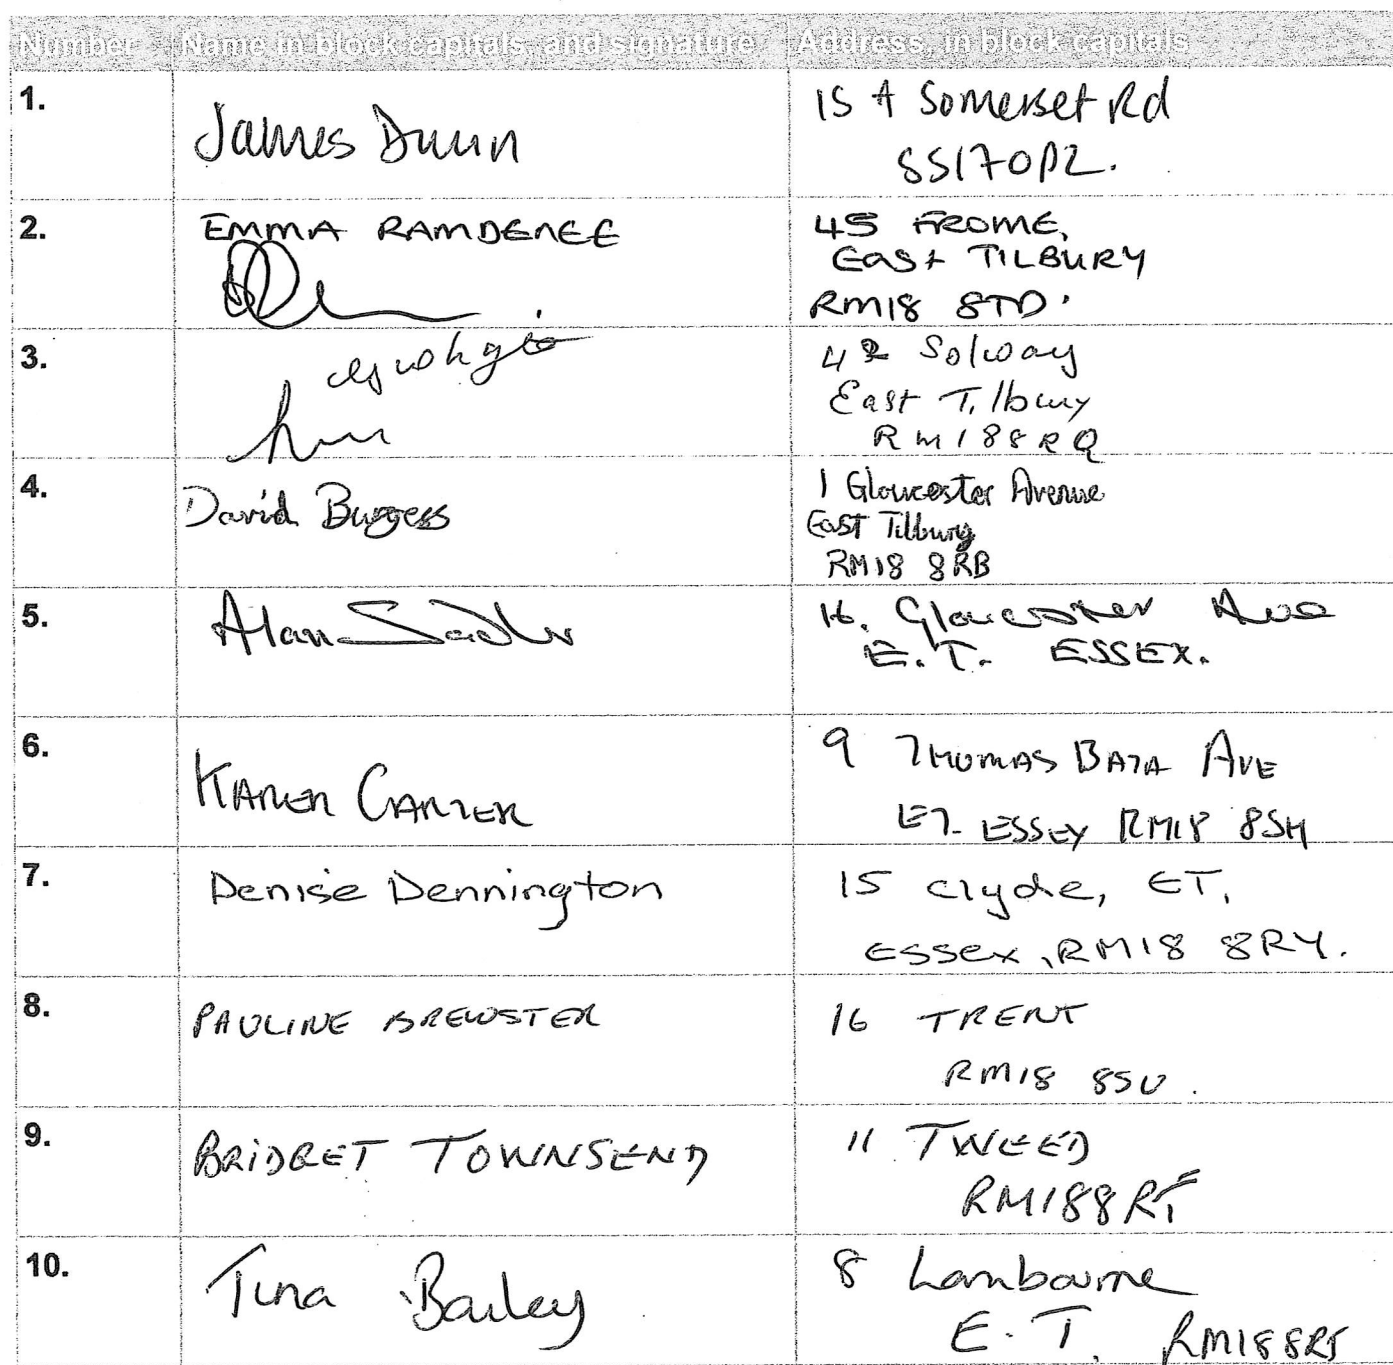 Number Name in block capitals, and signature Address, in block capitals
1. James Dunn 15 A Somerset Rd
SS17 0PZ.
2. EMMA RAMDENEE 45 FROME,
EAST TILBURY
RM18 8TD.
3. 42 Solway
East Tilbury
RM18 8RQ
4. David Burgess 1 Gloucester Avenue
East Tilbury
RM18 8RB
5. Alan Sadler 16. Gloucester Ave
E.T. ESSEX.
6. KAREN CARTER 9 THOMAS BATA AVE
ET- ESSEX RM18 8SH
7. Denise Dennington 15 Clyde, ET,
ESSex, RM18 8RY.
8. PAULINE BREWSTER 16 TRENT
RM18 8SU.
9. BRIDGET TOWNSEND 11 TWEED
RM18 8RT
10. Tina Bailey 8 Lambourne
E.T. RM18